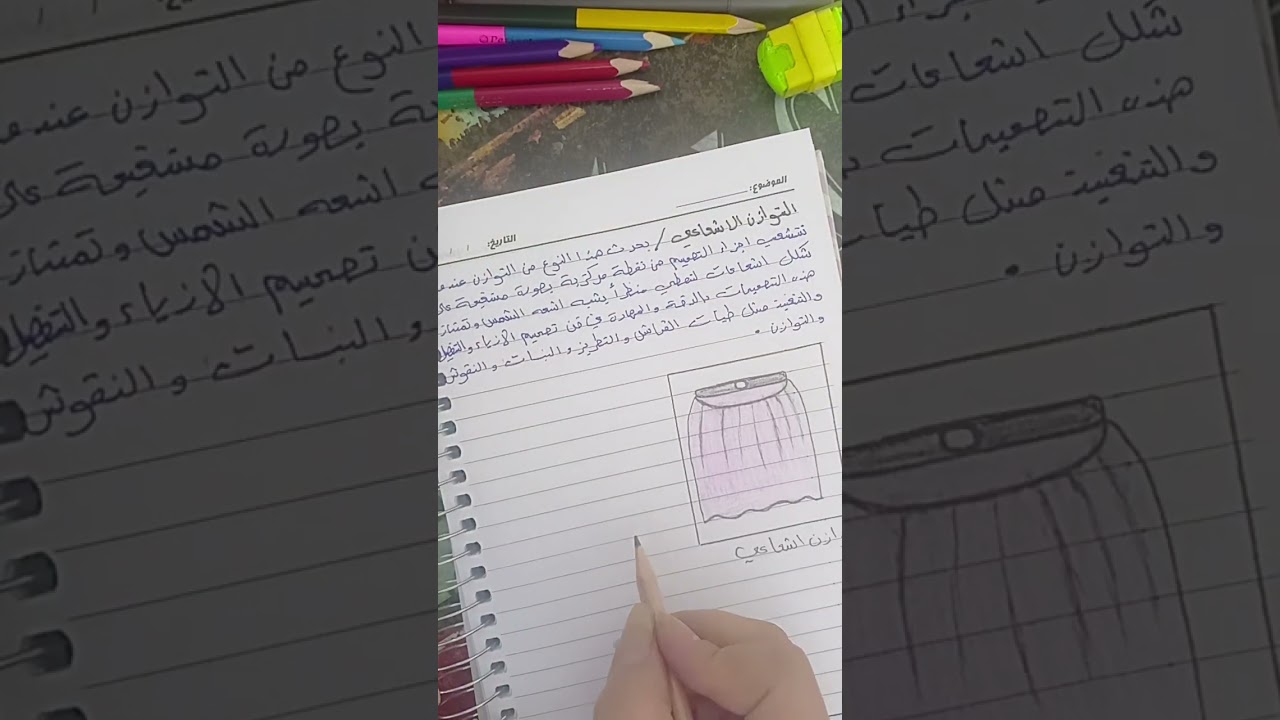 الموضوع:
التاريخ: / /
التوازن الاشعاعي / يحدث هذا النوع من التوازن عندما
تتشعب اجزاء التصميم من نقطة مركزية بصورة مستقيمة على
شكل اشعاعات لتعطي منظراً يشبه اشعه الشمس وتمتاز
هذه التصميمات بالدقة والمهارة في فن تصميم الازياء والتفصيل
والتنفيذ مثل طيات القماش والتطريز والبنسات والنقوش
والتوازن .
ازن اشعاعي